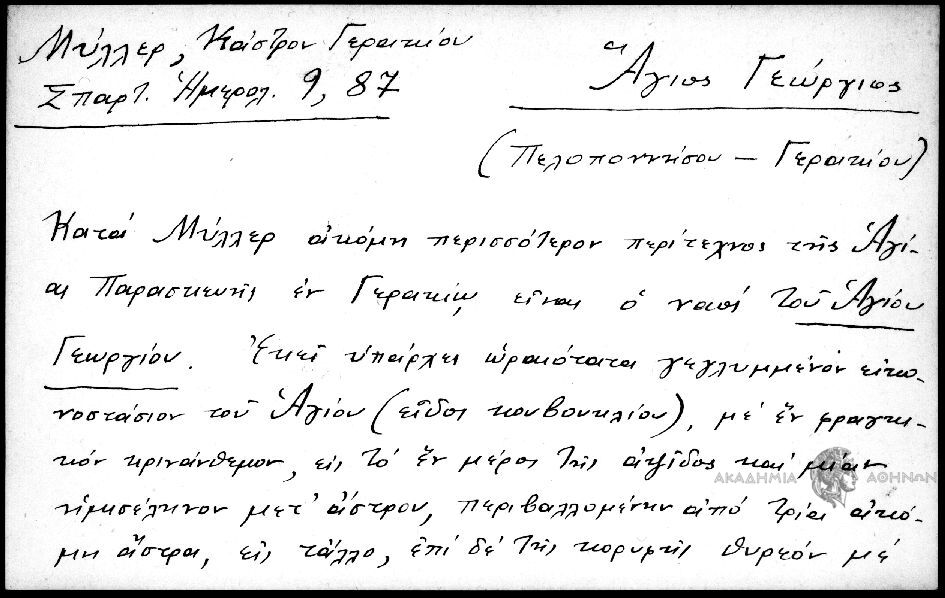 Μύλλερ, Κάστρον Γερακίου
Σπαρτ. Ἡμερολ. 9, 87
Ἅγιος Γεώργιος
(Πελοποννήσου – Γερακίου)
Κατά Μύλλερ ἀκόμη περισσότερον περίτεχνος τῆς Ἁγί-
ας Παρασκευῆς ἐν Γερακίῳ, εἶναι ὁ ναός τοῦ Ἁγίου
Γεωργίου. Ἐκεῖ ὑπάρχει ὡραιότατα γεγλυμμένον εἰκο-
νοστάσιον τοῦ Ἁγίου (εἶδος κουβουκλίου), μέ ἕν φραγκι-
κόν κρινάνθεμον, εἰς τό ἕν μέρος τῆς ἁψῖδος καί μίαν
ἡμισέληνον μετ' ἄστρου, περιβαλλομένην ἀπό τρία ἀκό-
μη ἄστρα, εἰς τἄλλο, ἐπί δέ τῆς κορυφῆς θυρεόν μέ
ΑΚΑΔΗΜΙΑ ΑΘΗΝΩΝ